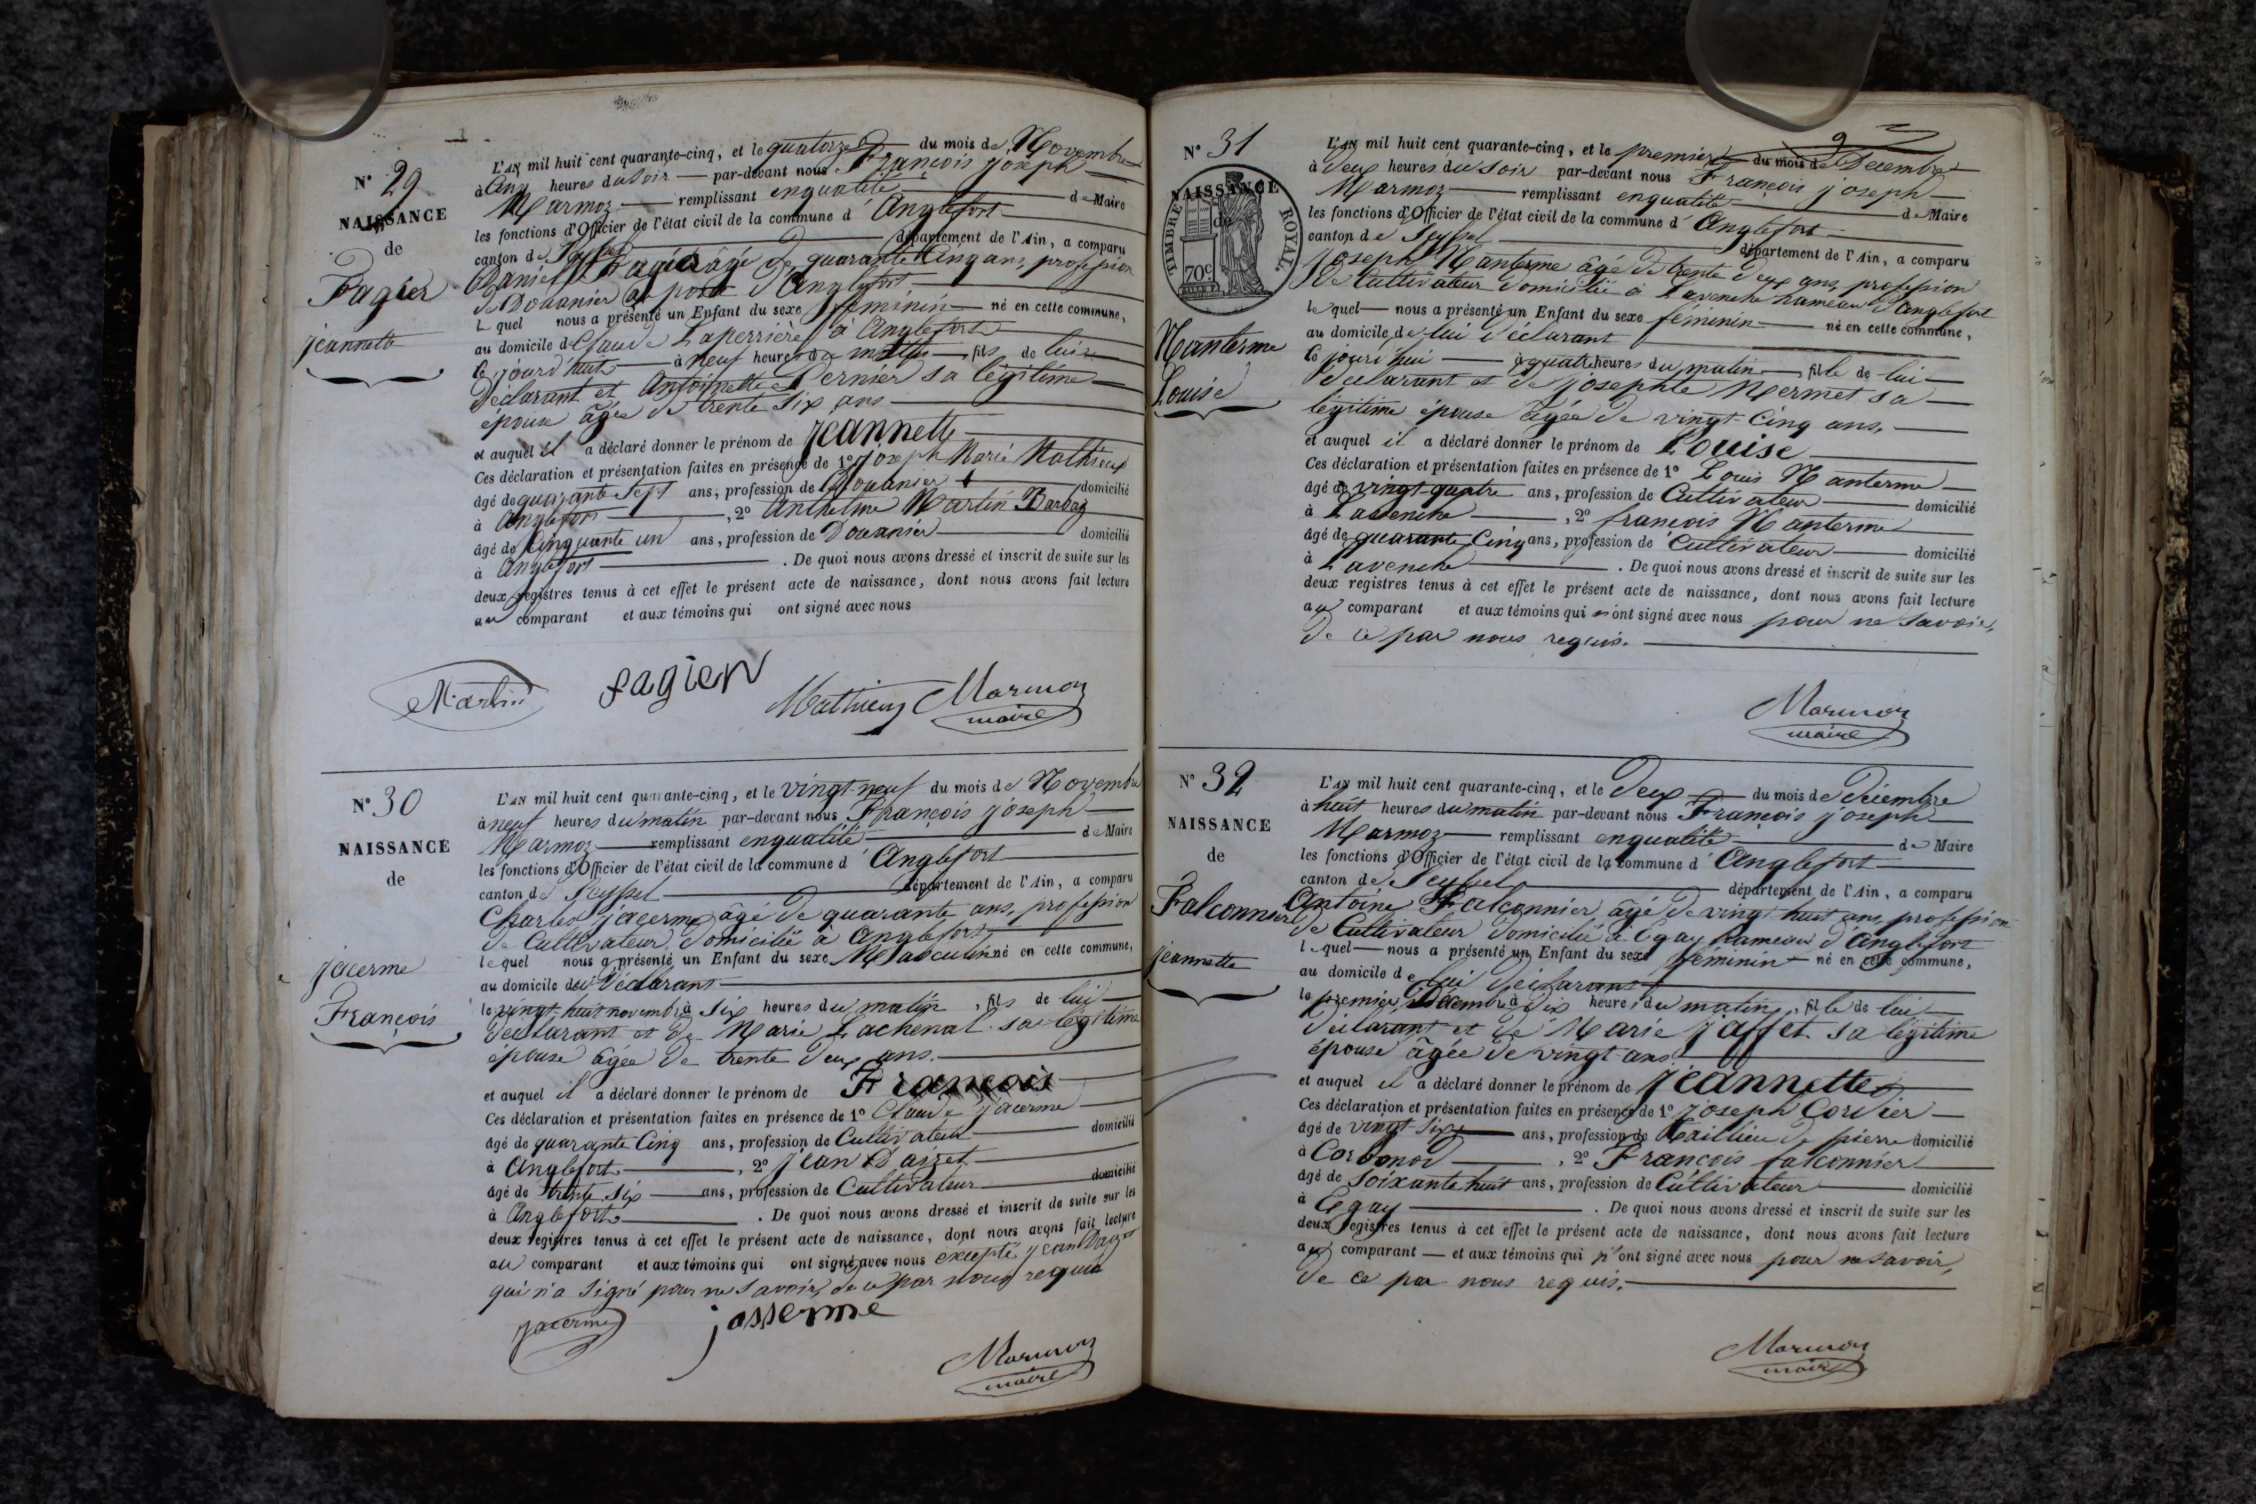 N° 29
NAISSANCE
de
Fagier
jeannette
L'AN mil huit cent quarante-cinq, et le quatorze du mois de Novembre
à Cinq heures du soir par-devant nous François joseph
Marmoz remplissant en qualité de Maire
les fonctions d'Officier de l'état civil de la commune d'Anglefort
canton de Seyssel département de l'Ain, a comparu
Daniel Fagier âgé de quarante Cinq ans, profession
de Douanier au poste d'Anglefort
Lequel nous a présenté un Enfant du sexe féminin né en cette commune,
au domicile de Claude Laperrière à Anglefort
ce jourd'hui à neuf heures du matin fils de lui
déclarant et Antoinette Pernier sa légitime
épouse âgée de trente six ans
et auquel il a déclaré donner le prénom de Jeannette
Ces déclaration et présentation faites en présence de 1° joseph Marie Mathieu
âgé de quarante Sept ans, profession de Douanier domicilié
à Anglefort, 2° Anthelme Martin Barbaz
âgé de Cinquante un ans, profession de Douanier domicilié
à Anglefort. De quoi nous avons dressé et inscrit de suite sur les
deux registres tenus à cet effet le présent acte de naissance, dont nous avons fait lecture
au comparant et aux témoins qui ont signé avec nous
Martin fagier Mathieu Marmoz
maire
N° 30
NAISSANCE
de
jacerme
François
L'AN mil huit cent quarante-cinq, et le vingt-neuf du mois de Novembre
à neuf heures du matin par-devant nous François joseph
Marmoz remplissant en qualité de Maire
les fonctions d'Officier de l'état civil de la commune d'Anglefort
canton de Seyssel département de l'Ain, a comparu
Charles jacerme âgé de quarante ans, profession
de Cultivateur domicilié à Anglefort
lequel nous a présenté un Enfant du sexe Masculin né en cette commune,
au domicile du déclarant
le vingt-huit novembre à six heures du matin, fils de lui
déclarant et de Marie Lachenal sa légitime
épouse âgée de trente deux ans.
et auquel il a déclaré donner le prénom de François
Ces déclaration et présentation faites en présence de 1° Claude jacerme
âgé de quarante Cinq ans, profession de Cultivateur domicilié
à Anglefort, 2° jean Darzet
âgé de trente six ans, profession de Cultivateur domicilié
à Anglefort. De quoi nous avons dressé et inscrit de suite sur les
deux registres tenus à cet effet le présent acte de naissance, dont nous avons fait lecture
au comparant et aux témoins qui ont signé avec nous excepté jean Darzet
qui n'a signé pour ne savoir, de ce par nous requis
jacerme josserme
Marmoz
maire
9
N° 31
NAISSANCE
de
TIMBRE ROYAL
70c
Nanterme
Louise
L'AN mil huit cent quarante-cinq, et le premier du mois de Décembre
à deux heures du soir par-devant nous François joseph
Marmoz remplissant en qualité de Maire
les fonctions d'Officier de l'état civil de la commune d'Anglefort
canton de Seyssel département de l'Ain, a comparu
joseph Nanterme âgé de trente deux ans, profession
de Cultivateur domicilié à Lavenche hameau d'Anglefort
lequel nous a présenté un Enfant du sexe féminin né en cette commune,
au domicile de lui déclarant
ce jourd'hui à quatre heures du matin, fille de lui
déclarant et de josephte Mermet sa
légitime épouse âgée de vingt-Cinq ans,
et auquel il a déclaré donner le prénom de Louise
Ces déclaration et présentation faites en présence de 1° Louis Nanterme
âgé de vingt-quatre ans, profession de Cultivateur domicilié
à Lavenche, 2° françois Nanterme
âgé de quarante Cinq ans, profession de Cultivateur domicilié
à Lavenche. De quoi nous avons dressé et inscrit de suite sur les
deux registres tenus à cet effet le présent acte de naissance, dont nous avons fait lecture
au comparant et aux témoins qui n'ont signé avec nous pour ne savoir,
de ce par nous requis.
Marmoz
maire
N° 32
NAISSANCE
de
Falconnier
jeannette
L'AN mil huit cent quarante-cinq, et le deux du mois de décembre
à huit heures du matin par-devant nous François joseph
Marmoz remplissant en qualité de Maire
les fonctions d'Officier de l'état civil de la commune d'Anglefort
canton de Seyssel département de l'Ain, a comparu
Antoine Falconnier, âgé de vingt huit ans, profession
de Cultivateur domicilié à Egay hameau d'Anglefort
lequel nous a présenté un Enfant du sexe féminin né en cette commune,
au domicile de lui déclarant
le premier Décembre à dix heures du matin, fille de lui
déclarant et de Marie jaffet sa légitime
épouse âgée de vingt ans
et auquel il a déclaré donner le prénom de Jeannette
Ces déclaration et présentation faites en présence de 1° joseph Cordier
âgé de vingt-six ans, profession de Tailleur de pierre domicilié
à Corbonod, 2° François falconnier
âgé de soixante huit ans, profession de Cultivateur domicilié
à Egay. De quoi nous avons dressé et inscrit de suite sur les
deux registres tenus à cet effet le présent acte de naissance, dont nous avons fait lecture
au comparant et aux témoins qui n'ont signé avec nous pour ne savoir,
de ce par nous requis.
Marmoz
maire